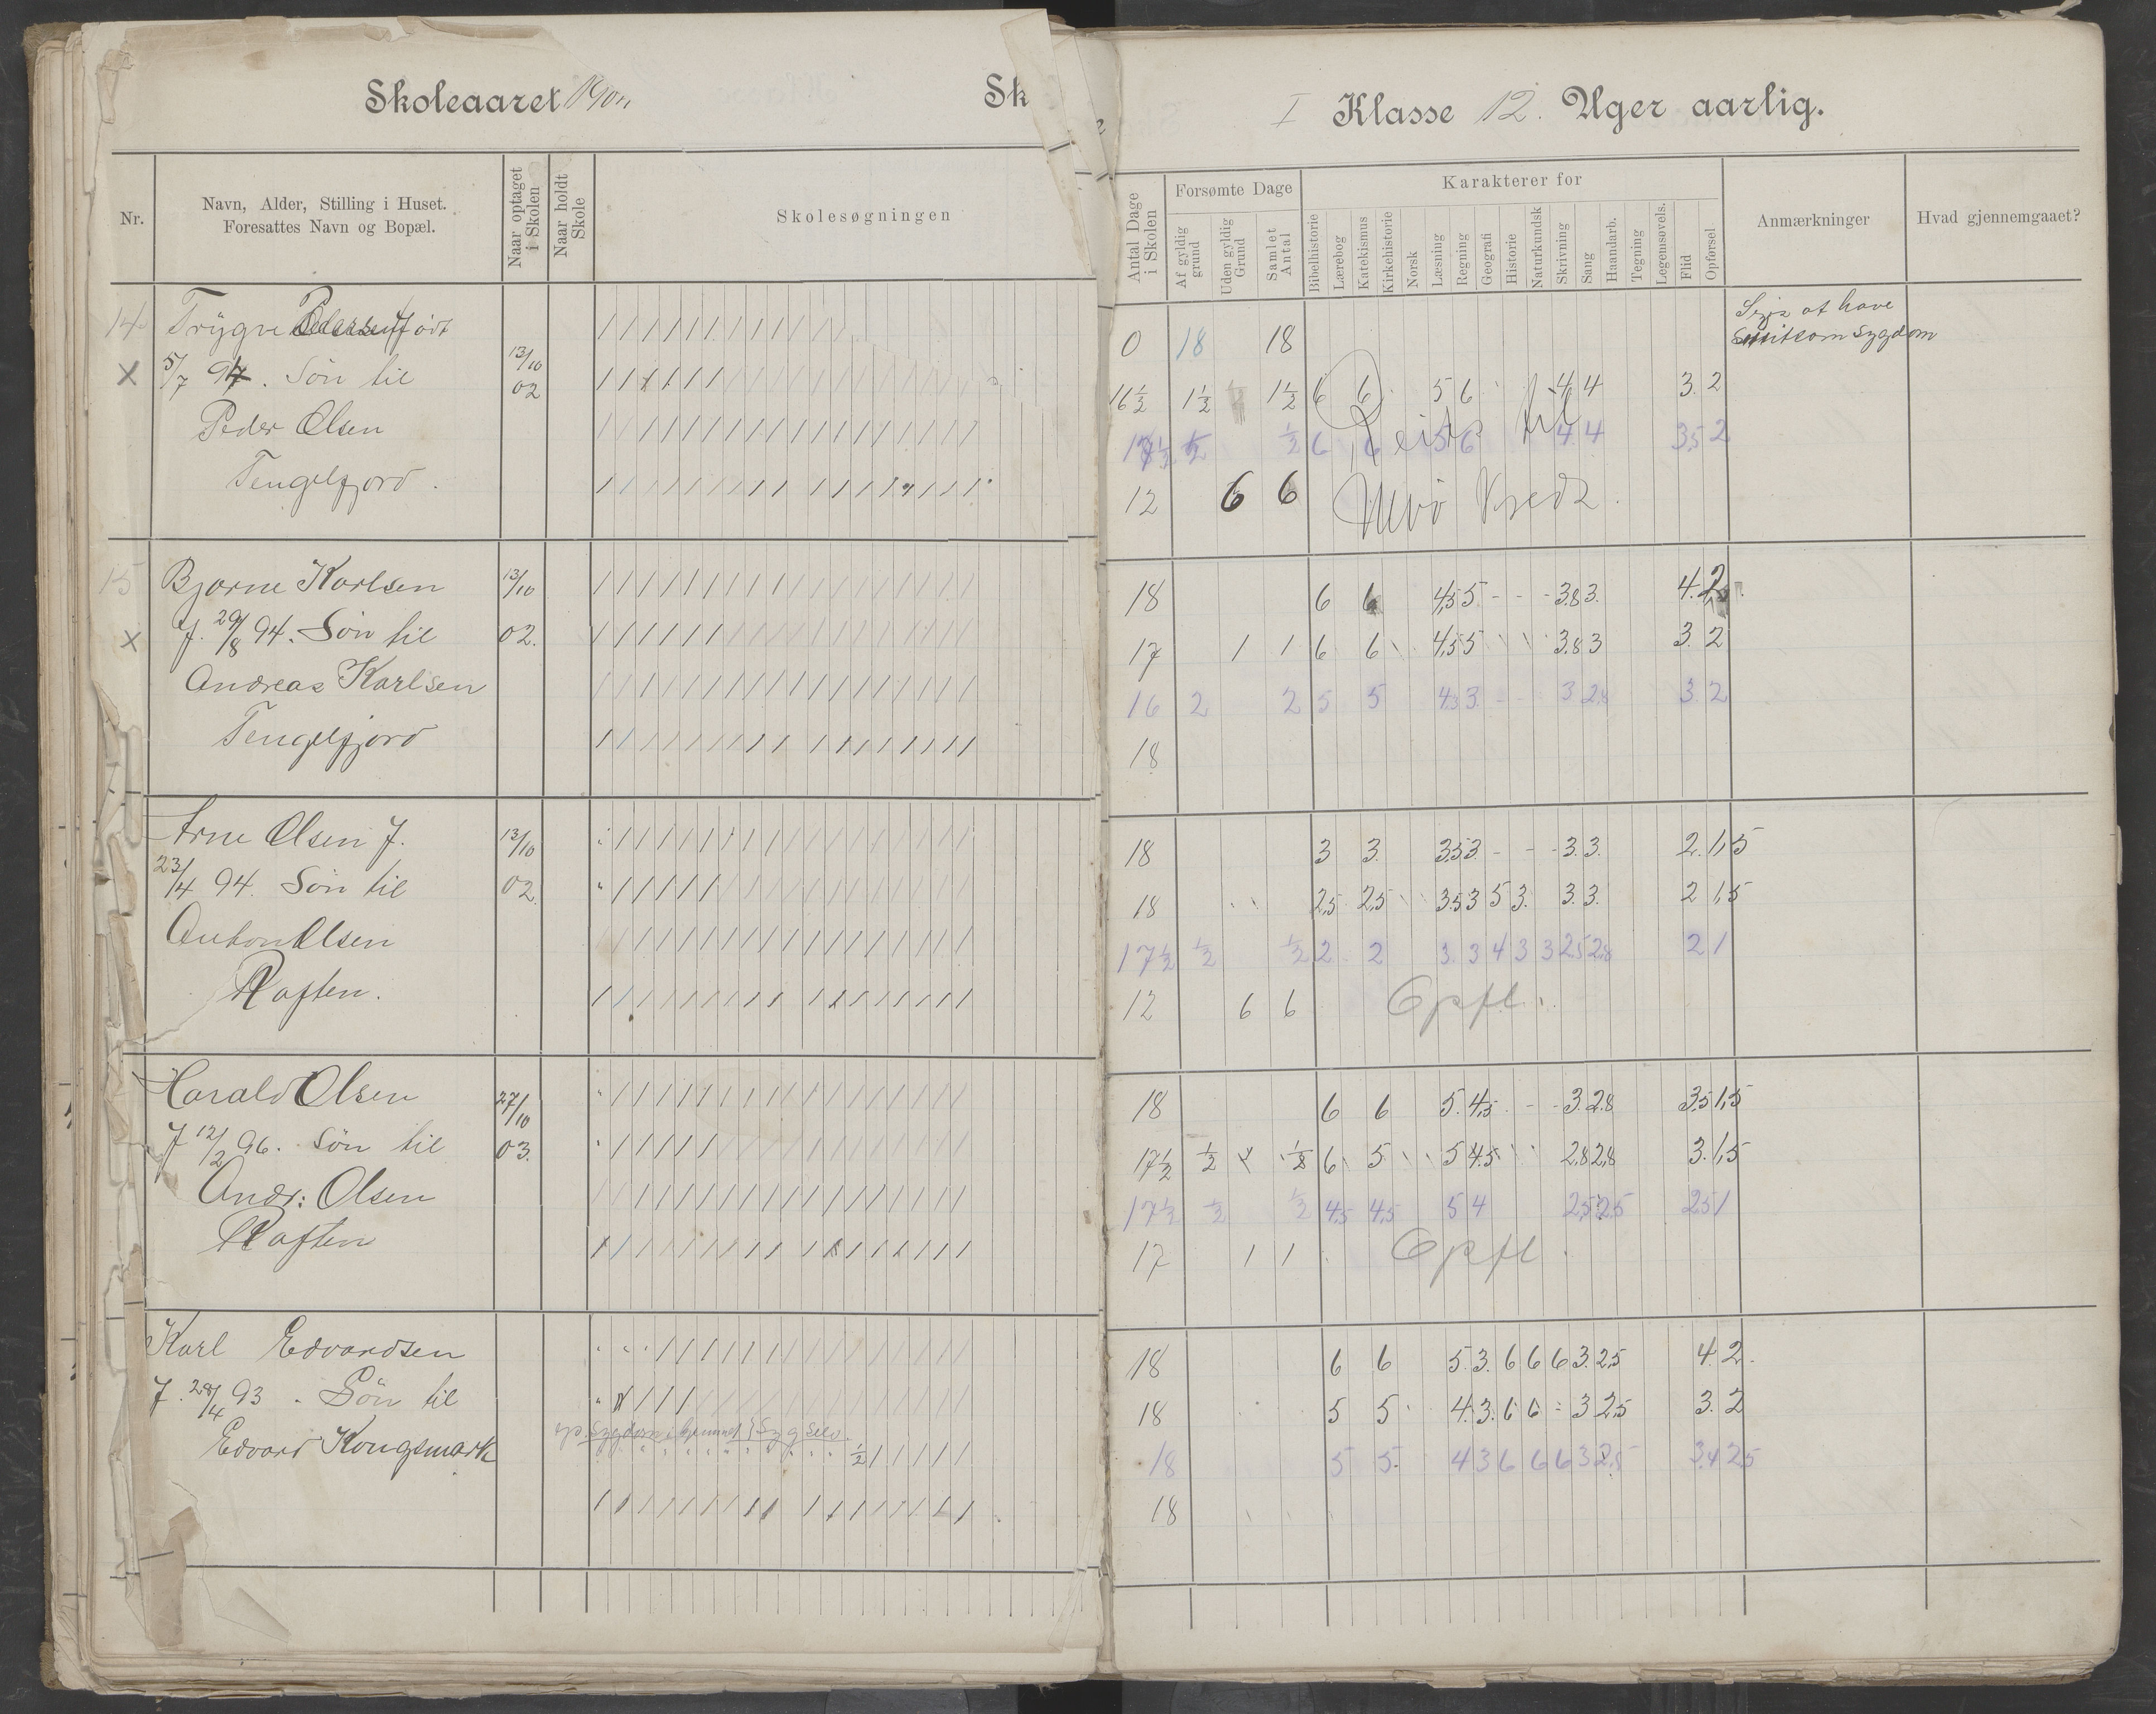 Skoleaaret 190
Sk
I Klasse 12. Uger aarlig.
Nr.
Navn, Alder, Stilling i Huset.
Foresattes Navn og Bopæl.
Naar optaget
i Skolen
Naar holdt
Skole
Skolesøgningen
Antal Dage
i Skolen
Forsømte Dage
Af gyldig
grund
Uden gyldig
Grund
Samlet
Antal
Karakterer for
Bibelhistorie
Lærebog
Katekismus
Kirkehistorie
Norsk
Læsning
Regning
Geografi
Historie
Naturkundsk
Skrivning
Sang
Haandarb.
Tegning
Legemsøvels.
Flid
Opførsel
Anmærkninger
Hvad gjennemgaaet?
14 Trygve Pedersen født
0 18 18
Siges at have
smitsom sygdom
X 5/7 94. Søn til 13/10 02
16½ 1½ 1½ 6 6 5 6 4 4 3. 2
Peder Olsen
½ 6 6 5 6 4 4 3,5 2
Reist til
Tengelfjord.
12 6 6
Kreds.
15 Bjarne Karlsen 13/10
18 6 6 4,5 5 - - - 3,8 3. 4. 2
X f. 29/8 94. Søn til 02.
17 1 1 6 6 4,5 5 3,8 3 3. 2
Andreas Karlsen
16 2 2 5 5 4,3 3. - - 3 2,8 3. 2
Tengelfjord
18
Arne Olsen f. 13/10
18 3 3. 3,5 3 - - - 3. 3. 2. 1,5
23/4 94. Søn til 02.
18 2,5 2,5 3,5 3 5 3. 3. 3. 2 1,5
Anton Olsen
17½ ½ ½ 2 2 3. 3 4 3 3 2,5 2,8 2 1
Raften.
12 6 6 Opfl.
Harald Olsen 27/10
18 6 6 5. 4,5 - - 3. 2,8 3,5 1,5
f 12/2 96. Søn til 03.
17½ ½ ½ 6 5 5 4,5 2,8 2,8 3. 1,5
Andr: Olsen
17½ ½ ½ 4,5 4,5 5 4 2,5 2,5 2,5 1
Raften
17 1 1 Opfl.
Karl Edvardsen
18 6 6 5. 3. 6 6 6 3. 2,5 4. 2.
f. 28/4 93. Søn til
18 5 5 4. 3. 6 6 3 2,5 3. 2
Edvard Kongsmark
Sygdom i hjemmet } Syg selv.
½
18 5 5. 4 3 6 6 6 3 2,8 3,4 2,5
18